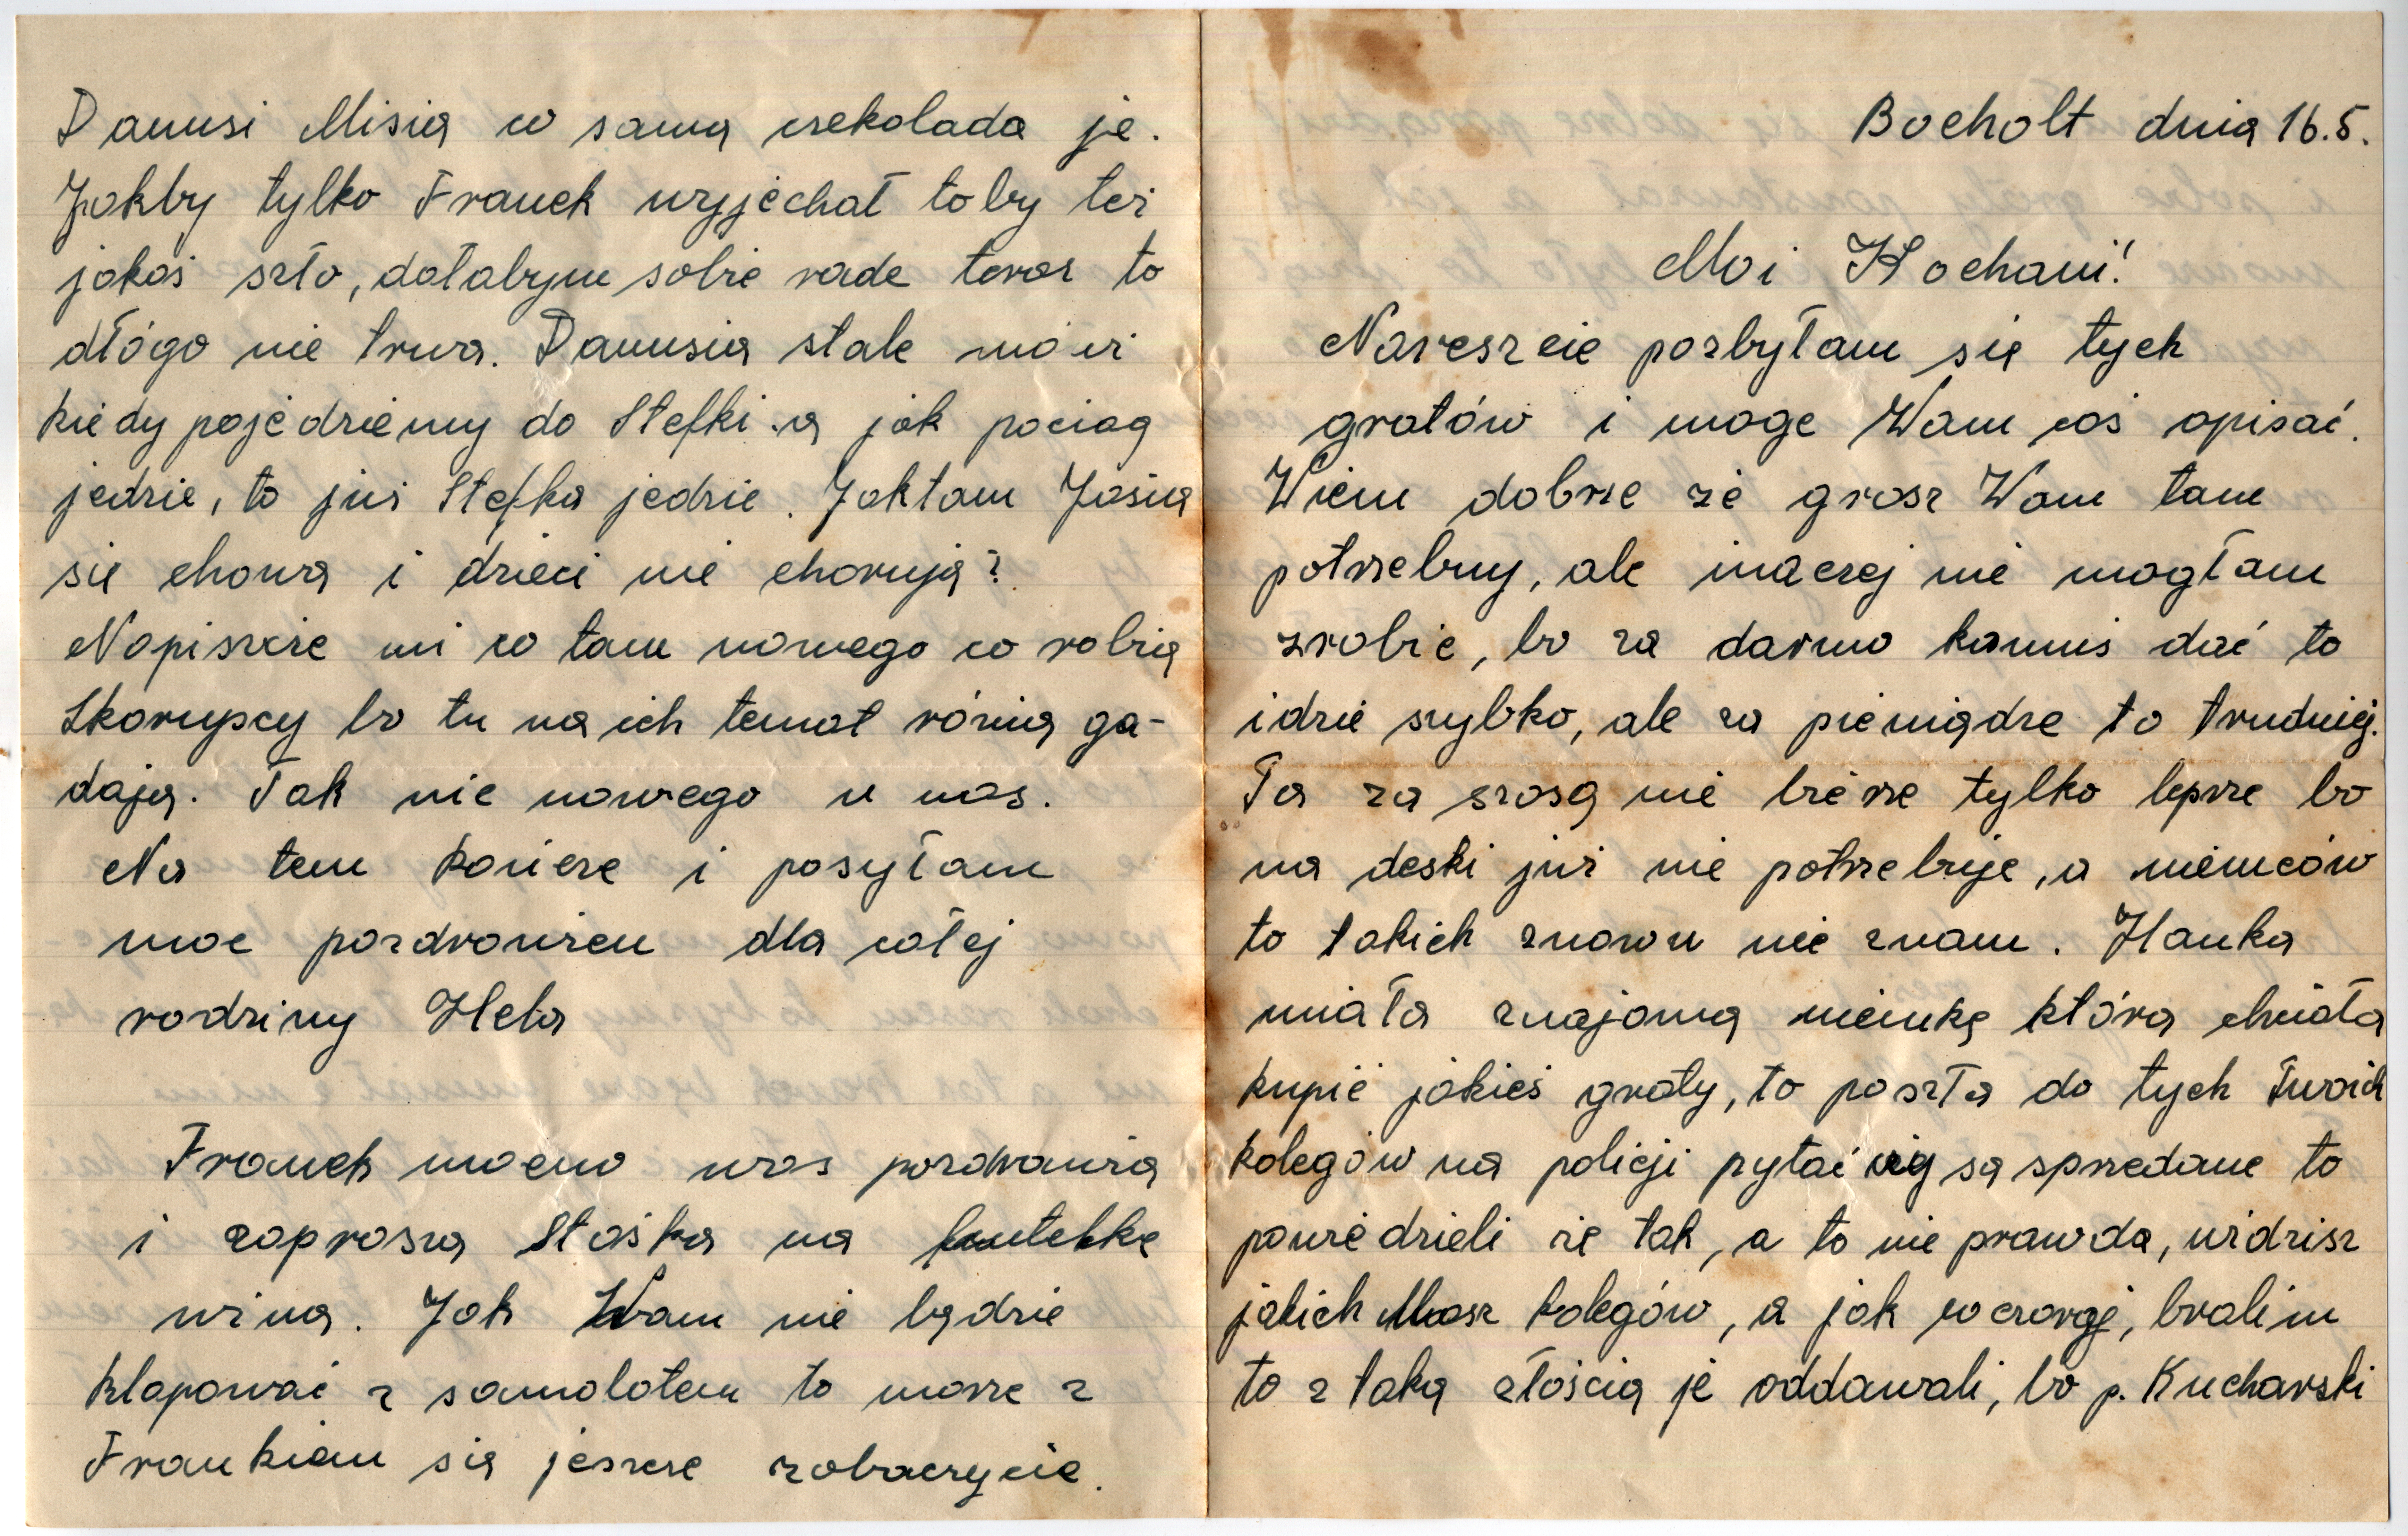 Bocholt dnia 16.5.
Moi Kochani!
Nareszcie pozbyłam się tych
gratów i moge Wam coś opisać.
Wiem dobrze że grosz Wam tam
potrzebny, ale inaczej nie mogłam
zrobic, bo za darmo kamuś dać to
idzie szybko, ale za pieniądze to trudniej.
Ta za szosą nie bierze tylko lepsze bo
na deski już nie potrzebuje, a niemców
to takich znowu nie znam. Hanka
miała znajomą niemkę która chciała
kupić jakieś graty, to poszła do tych Twoich
kolegów na policji pytać czy są sprzedane to
powiedzieli że tak, a to nie prawda, widzisz
jakich Masz kolegów, a jak wczoraj, bralim
to z taką złością je oddawali, bo p. Kucharski
Danusi Misia co samą czekolada je.
Jakby tylko Franek wyjechał toby też
jakoś szło, dałabym sobie rade teraz to
dłógo nie trwa. Danusia stale mówi
kiedy pojedziemy do Stefki a jak pociag
jedzie, to już Stefka jedzie. Jaktam Jasia
się chowa i dzieci nie chorują?
Napiszcie mi co tam nowego co robią
Skorupscy bo tu na ich temat różnią ga-
dają. Tak nic nowego u nas.
Na tem kończe i posyłam
moc pozdrowien dla całej
rodziny Hela
Franek mocno was pozdrawia
i zaprosza Staśka na butelkę
wina. Jak Wam nie będzie
klapować z samolotem to morze z
Frankiem się jeszcze zobaczycie.